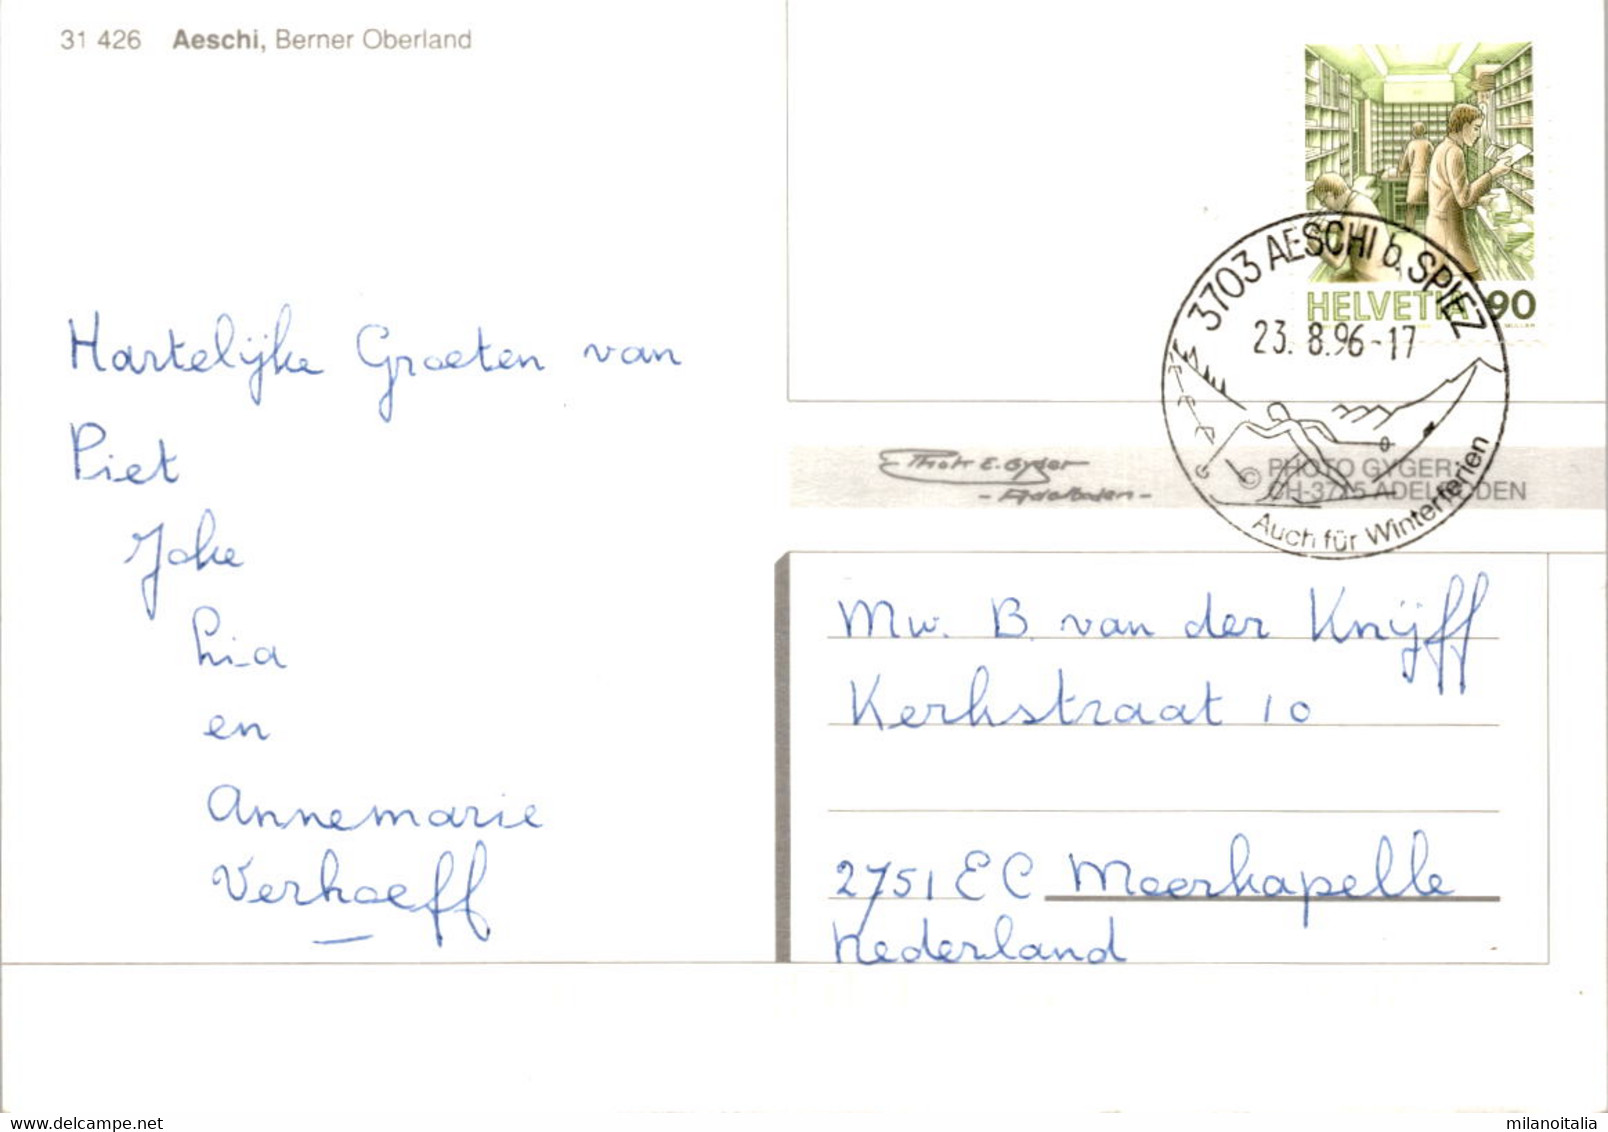 31 426 Aeschi, Berner Oberland
HELVETIA 90
MÜLLER
3703 AESCHI b. SPIEZ
23. 8.96-17
Auch für Winterferien
Hartelijke Groeten van
Piet
Joke
Lia
en
Annemarie
Verhoeff
Photo E. Gyger
- Adelboden -
© PHOTO GYGER
CH-3715 ADELBODEN
Mw. B van der Knijff
Kerkstraat 10
2751 EC Moerkapelle
Nederland
milanoitalia